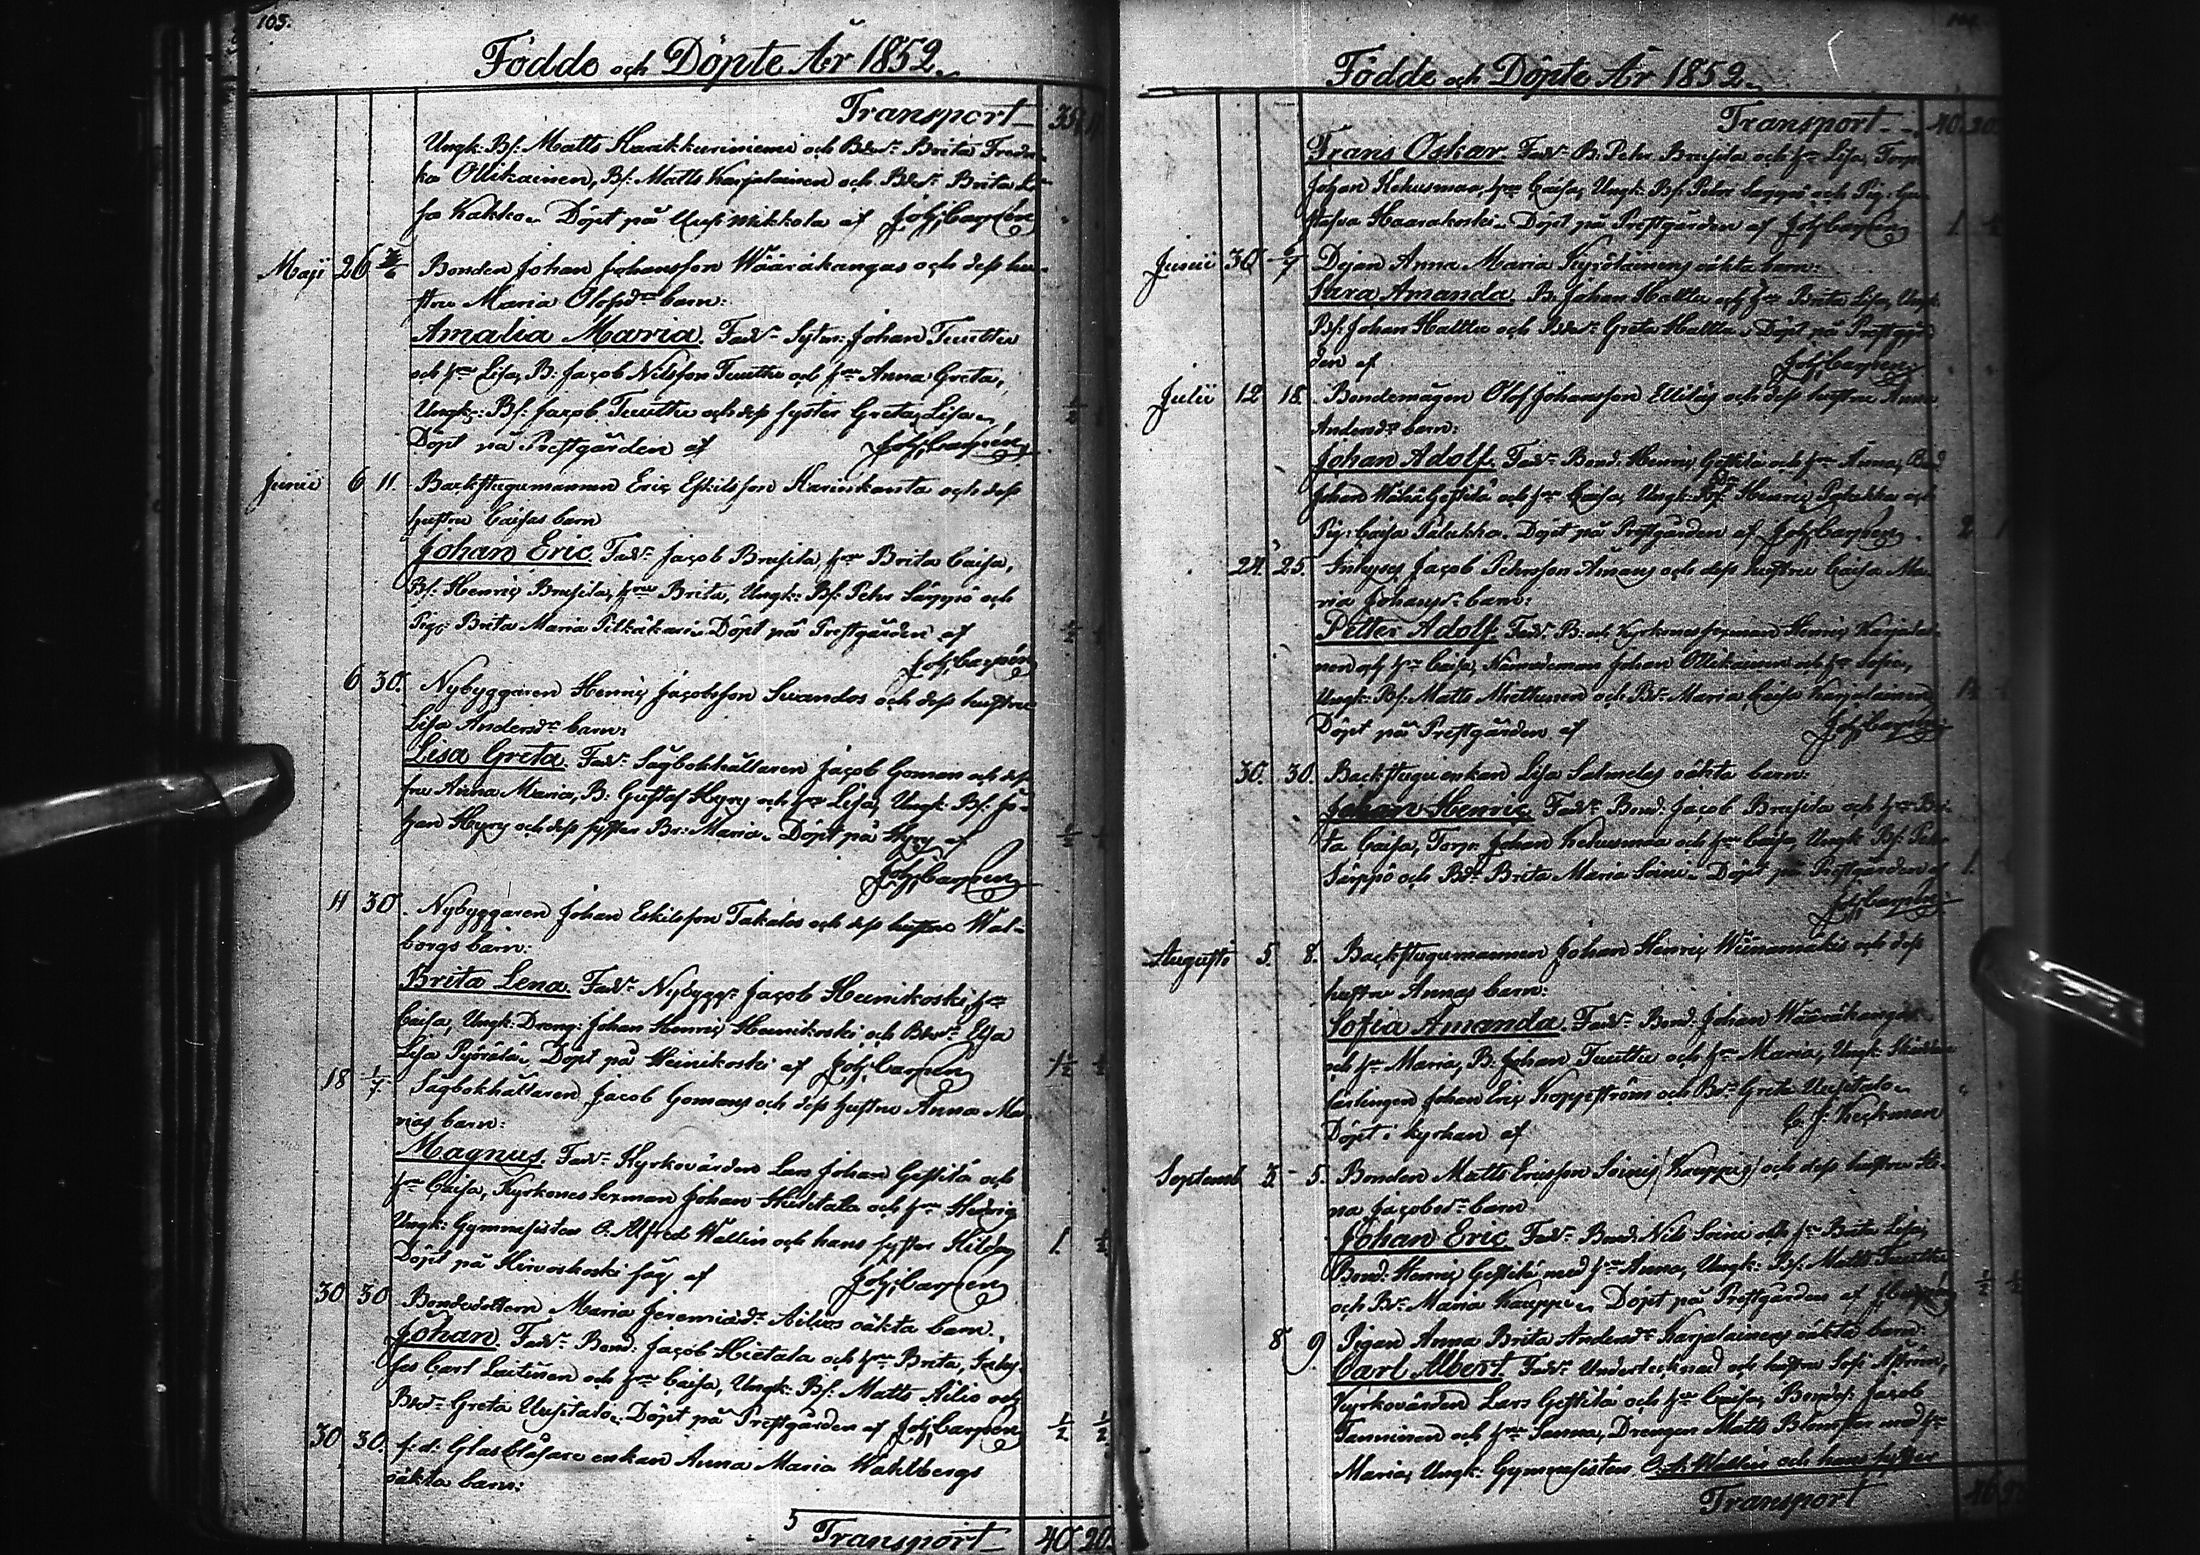 103.
Födde och Döpte År 1852.
Transport
Ungk: Bs: Matts Karikkuniemi och Bdr Brita Fredri-
ka Ollikainen, Bs: Matts Karjalainen och Bdr Brita Li-
sa Kakko. Döpt på Uusimikkola af Joh: Carpén
Maji 26 Bonden Johan Johansson Wääräkangas och dess hu-
stru Maria Olofsdr barn:
Amalia Maria. Fadr Sytm: Johan Tuuttu
och hru Lisa, B. Jacob Nilsson Tuuttu och hru Anna Greta,
Ungk: Bs: Jacob Tuuttu och dess syster Greta Lisa.
Döpt på Prestgården af Joh: Carpén
Junii 6 11. Backstugumannen Eric Eskilsson Karinkanta och dess
hustru Caisas barn
Johan Eric. Fadr Jacob Brusila, hru Brita Caisa,
Bs: Henric Brusila, hru Brita, Ungk: Bs: Petr Särppö och
Pig: Brita Maria Pitkäkari. Döpt på Prestgården af ½
Joh: Carpén
6 30. Nybyggaren Henric Jacobsson Suandos och dess hustru
Lisa Andersdr barn:
Lisa Greta. Fadr Sågbokhållaren Jacob Goman och dess
fru Anna Maria, B: Gustaf Hyry och hru Lisa, Ungk: Bs: Jo-
han Hyry och dess syster Br: Maria. Döpt på Hyry af ½
Joh: Carpén
11 30. Nybyggaren Johan Eskilsson Takalos och dess hustru Wal-
borgs barn:
Brita Lena. Fadr Nybyggr Jacob Heinikoski, hru
Caisa, Ungk: Dreng: Johan Henric Heinikoski och Bdr Elsa
Lisa Pyörälä. Döpt på Heinikoski af Joh: Carpén 1½ ½
18 1/7 Sågbokhållaren Jacob Gomans och dess hustru Anna Ma-
rias barn:
Magnus. Fadr Kyrkovärden Lars Johan Gestilä och
hru Caisa, Kyrkones sexman Johan Huistala och hru Hedvig
Ungk: Gymnasisten O. Alfred Wallin och hans syster Hilda, 1. ½
Döpt på Hirvoskoski såg af Joh: Carpén
30 30 Bondedottern Maria Jeremiædr Ailios oäkta barn.
Johan. Fadr Bond. Jacob Hietala och hru Brita, Inhy-
ses Carl Laitinen och hru Caisa, Ungk: Bs: Matts Ailio och
Bdr Greta Uusitalo. Döpt på Prestgården af Joh: Carpén ½ ½
30 30. f:d: Glasblåsare enkan Anna Maria Wahlbergs
oäkta barn:
5
Transport 40 20.
Födde och Döpte År 1852.
Transport 40 20.
Frans Oskar. Fadr B. Petr Brusila och hru Lisa, Torp:
Johan Kehusmaa, hru Caisa, Ungk: Bs: Petr Särppö och Pig: Gu-
stafva Haarakoski. Döpt på Prestgården af Joh: Carpén 1. ½
Junii 30. Dejan Anna Maria Kyröläinens oäkta barn:
Sara Amanda B. Johan Haltta och hru Brita Lisa, Ungk:
Bs: Johan Haltta och Bdr Greta Haltta. Döpt på Prestgår-
den af Joh: Carpén
Julii 12 18. Bondemågen Olof Johansson Ellilas och dess hustru Anna
Andersdr barn:
Johan Adolf. Fadr Bond. Henric Gestilä och hru Anna, Bond
Johan Gestilä och hru Caisa, Ungk: Bs: Henric Palukka och
Pig: Caisa Palukka. Döpt på Prestgården af Joh: Carpén. 2
24. 25. Inhyses Jacob Petersson Ämäns och dess hustru Caisa Ma-
ria Johansdr barn:
Petter Adolf. Fadr B: och Kyrkones sexman Henric Karjalai-
nen och hru Caisa, Nämndeman Johan Ollikainen och hru Sofia,
Ungk: Bs: Matts Miettunen och Br Maria Caisa Karjalainen
Döpt på Prestgården af Joh: Carpén
30. 30. Backstugu enkan Lisa Salmelas oäkta barn:
Johan Henric. Fadr Bond: Jacob Brusila och hru Bri-
ta Caisa, Torp: Johan Kehusmaa och hru Caisa, Ungk: Bs: Petr
Särppö och Bdr Brita Maria Soini. Döpt på Prestgården af 1.
Joh: Carpén
Augusti 5. 8. Backstugumannen Johan Henric Wiinamäkis och dess
hustru Annas barn:
Sofia Amanda. Fadr Bond. Johan Wääräkangas
och hru Maria, B. Johan Tuuttu och hru Maria, Ungk:
lärlingen Johan Eric Koppström och Bdr Greta Uusitalo.
Döpt i kyrkan af C. J. Heickman
Septemb 3 5. Bonden Matts Ericsson Soinis (Kauppis) och dess hustru He-
na Jacobsdr barn
Johan Eric. Fadr Bond. Nils Soini och hru Brita Lisa,
Bond: Henric Gestilä med hru Anna, Ungk: Bs: Matts Tuuttu
och Br Maria Kauppi. Döpt på Prestgården af J: Carpén ½ ½
8 9 Pigan Anna Brita Andersdr Karjalainens oäkta barn:
Carl Albert. Fadr Undertecknad och hustru Sofi Aström,
Kyrkovärden Lars Gestilä och hru Caisa, Bonds: Jacob
Tanninen och hru Sanna, Drengen Matts Blomster med hru
Maria, Ungk: Gymnasisten O. A. Wallin och hans syster
Transport